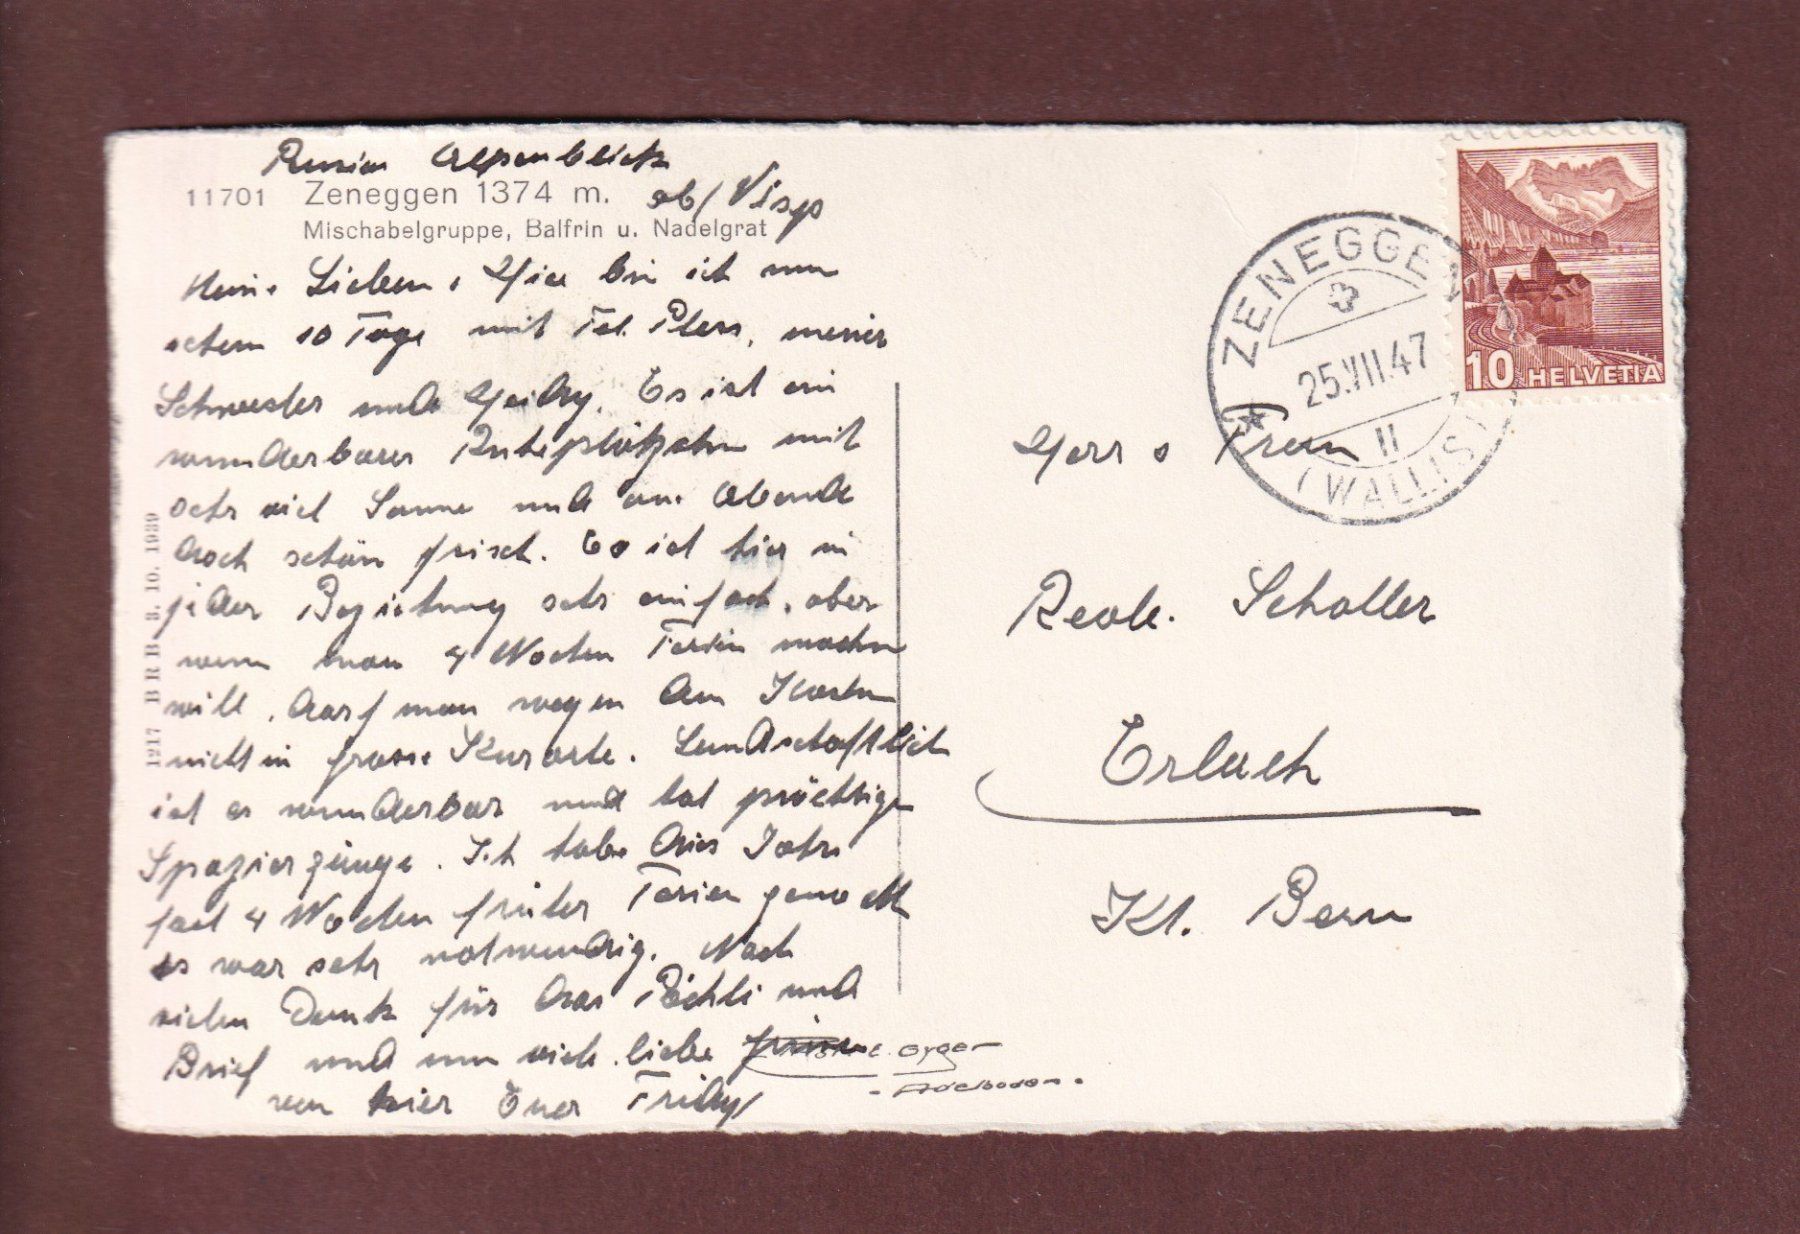 Pension Alpenblick
11701 Zeneggen 1374 m. ob/Visp
Mischabelgruppe, Balfrin u. Nadelgrat
Meine Lieben, Hier bin ich nun
schon 10 Tage mit Frl. , meiner
Schwester und Heidy. Es ist ein
wunderbares Ruheplätzchen mit
sehr viel Sonne und am Abend
doch schön frisch. Es ist hier in
jeder Beziehung sehr einfach, aber
wenn man 4 Wochen Ferien machen
will, darf man wegen den Kosten
nicht in grosse Kurorte. Landschaftlich
ist es wunderbar und hat prächtige
Spaziergänge. Ich habe dies Jahr
fast 4 Wochen früher Ferien gemacht
es war sehr notwendig. Noch
vielen Dank für das Päckli und
Brief und nun viele liebe
von hier Euer Fridy
1217 BRB 3. 10. 1939
Gyger
- Adelboden -
ZENEGGEN
25.VII.47
II
(WALLIS)
10 HELVETIA
Herr & Frau
Schaller
Erlach
Kt. Bern